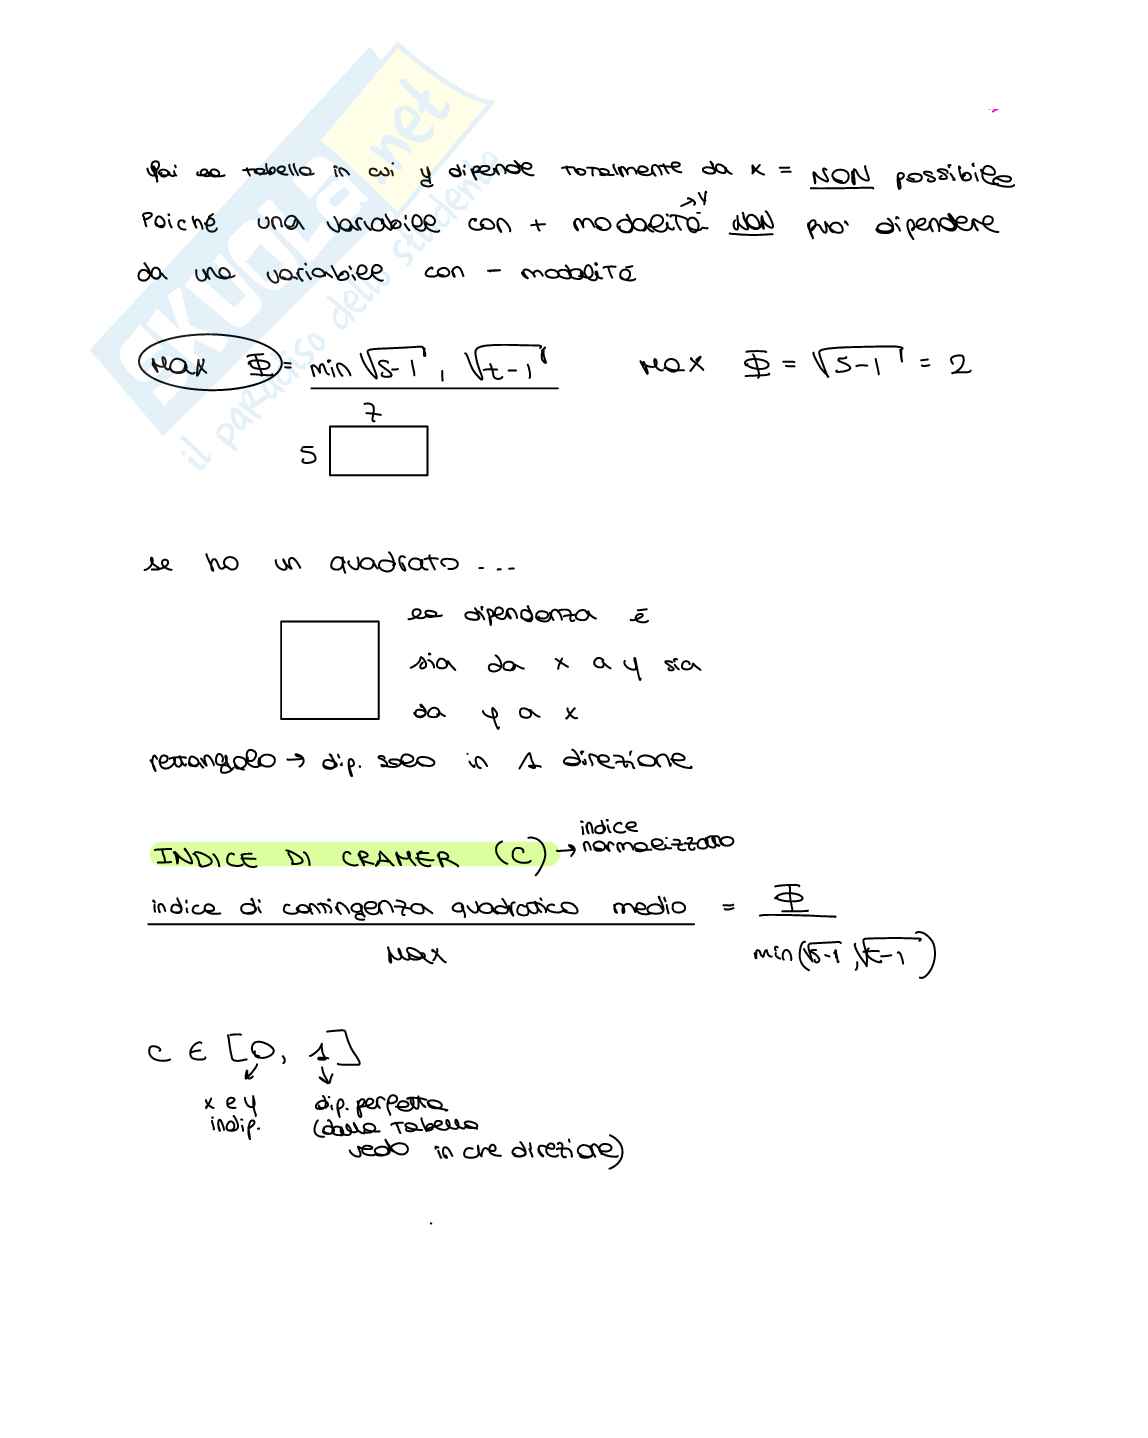 SKUOLA.net
il paradiso dello studente
fai la tabella in cui y dipende totalmente da x = NON possibile
→ y
Poiché una variabile con + modalità NON può dipendere
da una variabile con - modalità
Max Φ = min √s-1, √t-1 Max Φ = √5-1 = 2
7
5
se ho un quadrato...
la dipendenza è
sia da x a y sia
da y a x
rettangolo → dip. solo in 1 direzione
INDICE DI CRAMER (C) → indice normalizzato
indice di contingenza quadratico medio = Φ
Max min(√s-1, √t-1)
C ∈ [0, 1]
x e y dip. perfetta
indip. (dalla Tabella
vedo in che direzione)